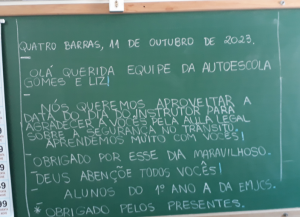 QUATRO BARRAS, 11 DE OUTUBRO DE 2023.
OLÁ QUERIDA EQUIPE DA AUTOESCOLA
GOMES E LIZ!
NÓS QUEREMOS APROVEITAR A
DATA DO DIA DO INSTRUTOR PARA
AGRADECER A VOCÊS PELA AULA LEGAL
SOBRE A SEGURANÇA NO TRÂNSITO.
APRENDEMOS MUITO COM VOCÊS!
OBRIGADO POR ESSE DIA MARAVILHOSO.
DEUS ABENÇÕE TODOS VOCÊS!
ALUNOS DO 1º ANO A DA EMJCS.
* OBRIGADO PELOS PRESENTES.